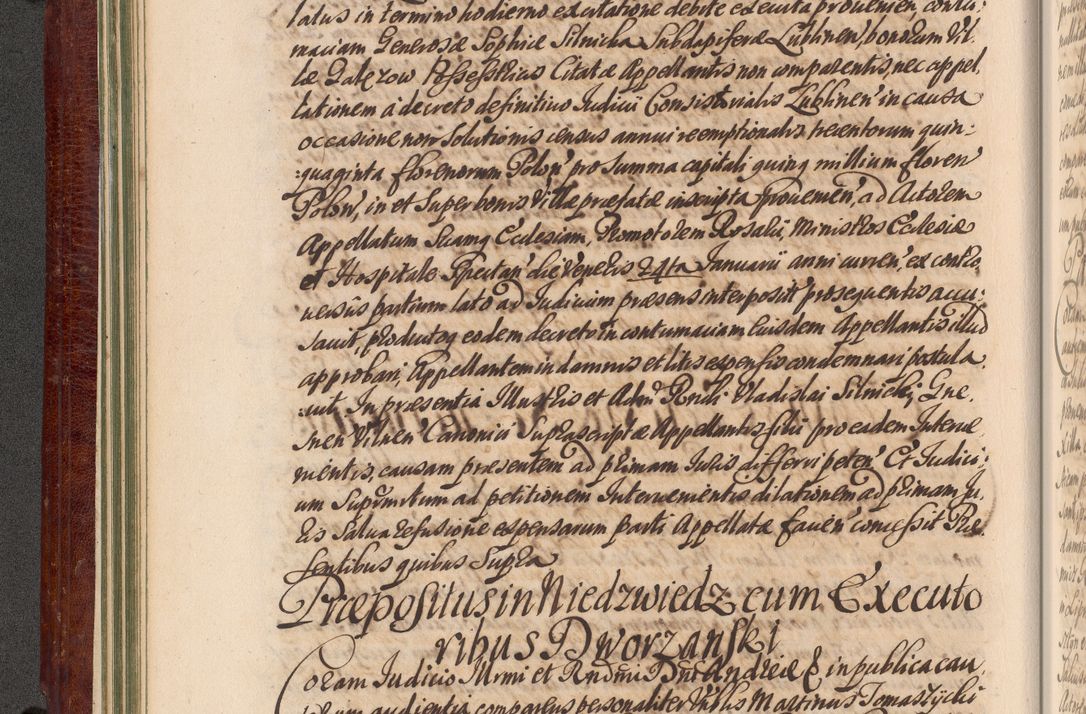 latus in termino hodierno ex citatione debite executa provenien' contu:
maciam Generosæ Sophiæ Silnicka Subdapiferæ Lublinen', bonorum Vil
læ Galęzow Possessricis Citatæ Appellantis non comparentis, nec appel,
lationem à decreto definitivo Iudicii Consistorialis Lublinen' in causa
occasione non Solutionis census annui reemptionalis trecentorum quin:
:quaginta florenorum Polon' pro Summa capitali quinq millium floren'
Polon', in et Super bonis Villæ præfatæ inscripta provenien', ad Actorem
Appellatum Suamq Ecclesiam, Promotorem Rosarii, Ministros Ecclesiæ
et Hospitale Spectan' die Veneris 24ta Januarii anni curren', ex contro
versiis partium lato ad Iudicium præsens interposit' prosequentis accu:
savit, productoq eodem decreto in contumaciam Eiusdem Appellantis illud
approbari, Appellantem in damnis et litis expensis condemnari postula
:vit. In præsentia Illustris et Adm Rndi Vladislai Silnicki, Gne,
snen' Vilnen' Canonici Suprascriptæ Appellantis filii pro eadem Interve
nientis, causam præsentem ad primam Iuris differri peten'. Et Iudici:
um Supremum ad petitionem Intervenientis dilationem ad primam Iu,
ris Salva refusione expensarum Parti Appellatæ favien' concessit Præ
sentibus quibus Supra
Præpositus in Niedzwiedz cum Executo
ribus Dworzanski
Coram Iudicio Illrmi et Rndmi Dni Andreæ & in publica cau,
rum audientia comparens personaliter Nblis Martinus Tomaszycki